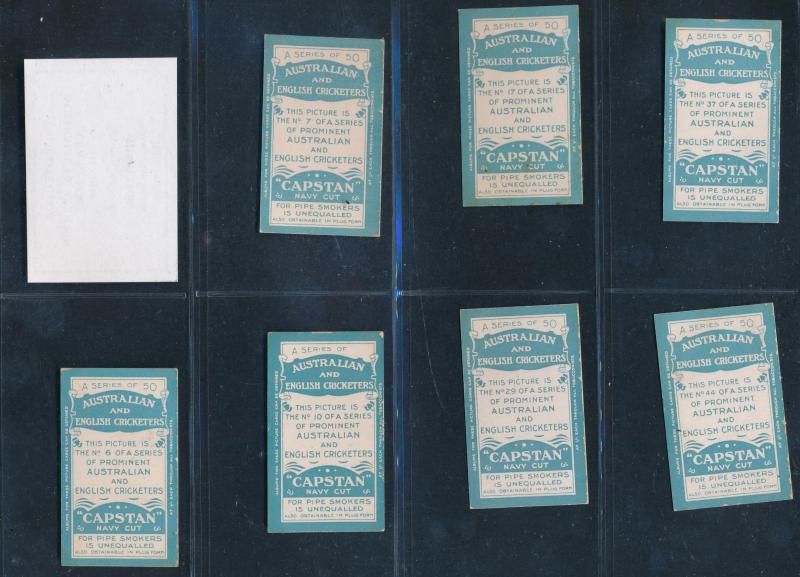 A SERIES OF 50
AUSTRALIAN
AND
ENGLISH CRICKETERS
THIS PICTURE IS
THE Nº 7 OF A SERIES
OF PROMINENT
AUSTRALIAN
AND
ENGLISH CRICKETERS
"CAPSTAN"
NAVY CUT
FOR PIPE SMOKERS
IS UNEQUALLED
ALSO OBTAINABLE IN PLUG FORM
A SERIES OF 50
AUSTRALIAN
AND
ENGLISH CRICKETERS
THIS PICTURE IS
THE Nº 17 OF A SERIES
OF PROMINENT
AUSTRALIAN
AND
ENGLISH CRICKETERS
"CAPSTAN"
NAVY CUT
FOR PIPE SMOKERS
IS UNEQUALLED
ALSO OBTAINABLE IN PLUG FORM
A SERIES OF 50
AUSTRALIAN
AND
ENGLISH CRICKETERS
THIS PICTURE IS
THE Nº 37 OF A SERIES
OF PROMINENT
AUSTRALIAN
AND
ENGLISH CRICKETERS
"CAPSTAN"
NAVY CUT
FOR PIPE SMOKERS
IS UNEQUALLED
ALSO OBTAINABLE IN PLUG FORM
A SERIES OF 50
AUSTRALIAN
AND
ENGLISH CRICKETERS
THIS PICTURE IS
THE Nº 6 OF A SERIES
OF PROMINENT
AUSTRALIAN
AND
ENGLISH CRICKETERS
"CAPSTAN"
NAVY CUT
FOR PIPE SMOKERS
IS UNEQUALLED
ALSO OBTAINABLE IN PLUG FORM
A SERIES OF
AUSTRALIAN
AND
ENGLISH CRICKETERS
THIS PICTURE IS
THE Nº 10 OF A SERIES
OF PROMINENT
AUSTRALIAN
AND
ENGLISH CRICKETERS
"CAPSTAN"
NAVY CUT
FOR PIPE SMOKERS
IS UNEQUALLED
ALSO OBTAINABLE IN PLUG FORM
A SERIES OF 50
AUSTRALIAN
AND
ENGLISH CRICKETERS
THIS PICTURE IS
THE Nº 29 OF A SERIES
OF PROMINENT
AUSTRALIAN
AND
ENGLISH CRICKETERS
"CAPSTAN"
NAVY CUT
FOR PIPE SMOKERS
IS UNEQUALLED
ALSO OBTAINABLE IN PLUG FORM
A SERIES OF 50
AUSTRALIAN
AND
ENGLISH CRICKETERS
THIS PICTURE IS
THE Nº 44 OF A SERIES
OF PROMINENT
AUSTRALIAN
AND
ENGLISH CRICKETERS
"CAPSTAN"
NAVY CUT
FOR PIPE SMOKERS
IS UNEQUALLED
ALSO OBTAINABLE IN PLUG FORM